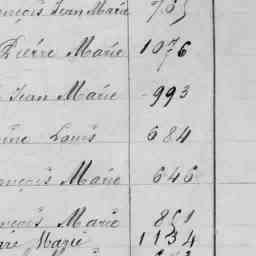 ençois Jean Marie 705
Pierre Marie 1076
Jean Marie 993
Louis 684
ençois Marie 646
ençois Marie 851
Marie 1134